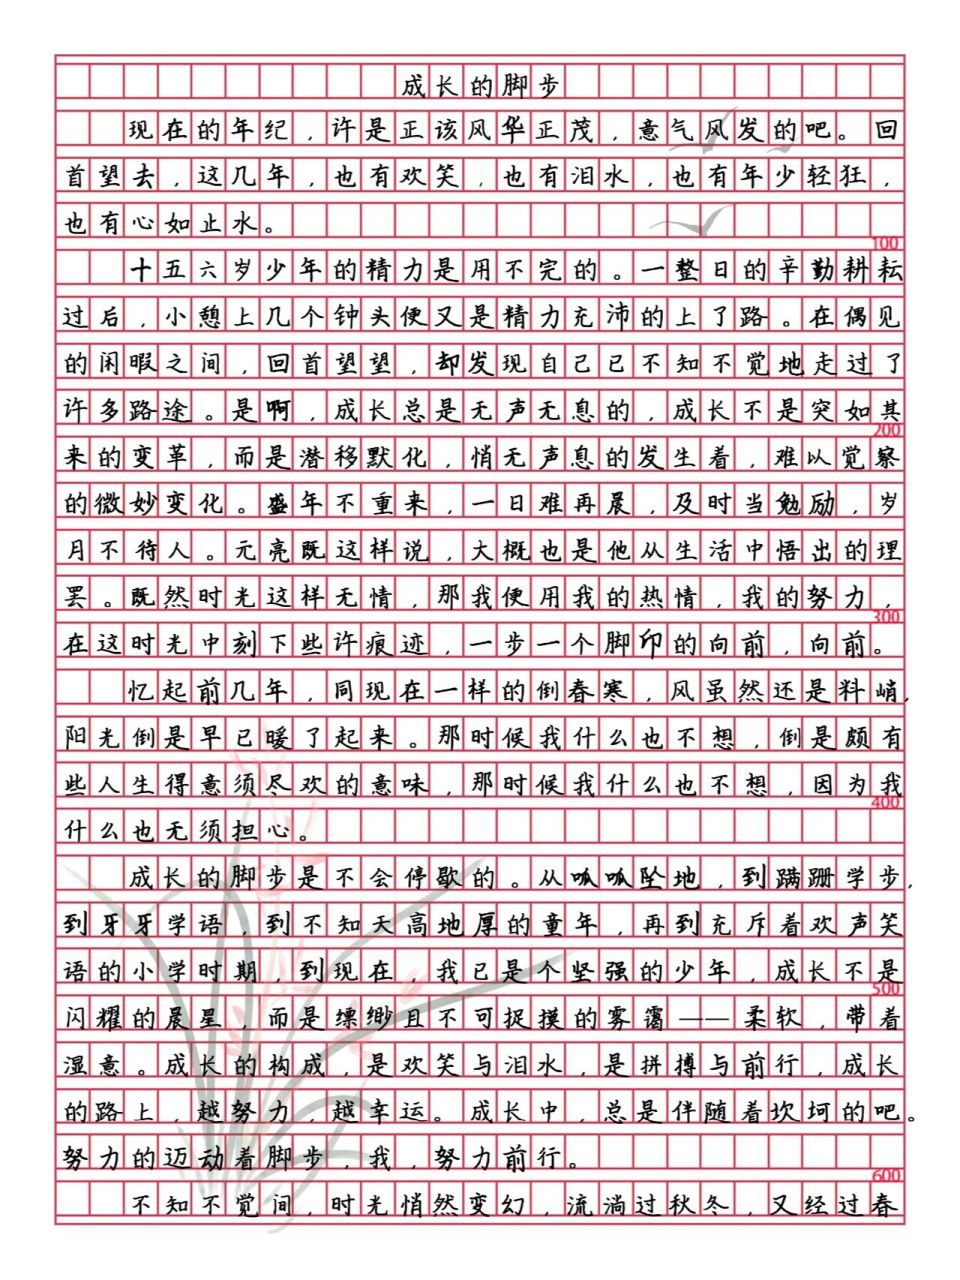 成长的脚步
现在的年纪，许是正该风华正茂，意气风发的吧。回
首望去，这几年，也有欢笑，也有泪水，也有年少轻狂，
也有心如止水。
100
十五六岁少年的精力是用不完的。一整日的辛勤耕耘
过后，小憩上几个钟头便又是精力充沛的上了路。在偶见
的闲暇之间，回首望望，却发现自己已不知不觉地走过了
许多路途。是啊，成长总是无声无息的，成长不是突如其
200
来的变革，而是潜移默化，悄无声息的发生着，难以觉察
的微妙变化。盛年不重来，一日难再晨，及时当勉励，岁
月不待人。元亮既这样说，大概也是他从生活中悟出的理
罢。既然时光这样无情，那我便用我的热情，我的努力，
300
在这时光中刻下些许痕迹，一步一个脚印的向前，向前。
忆起前几年，同现在一样的倒春寒，风虽然还是料峭，
阳光倒是早已暖了起来。那时候我什么也不想，倒是颇有
些人生得意须尽欢的意味，那时候我什么也不想，因为我
400
什么也无须担心。
成长的脚步是不会停歇的。从呱呱坠地，到蹒跚学步，
到牙牙学语，到不知天高地厚的童年，再到充斥着欢声笑
语的小学时期，到现在，我已是个坚强的少年，成长不是
500
闪耀的晨星，而是缥缈且不可捉摸的雾霭——柔软，带着
湿意。成长的构成，是欢笑与泪水，是拼搏与前行，成长
的路上，越努力，越幸运。成长中，总是伴随着坎坷的吧。
努力的迈动着脚步，我，努力前行。
600
不知不觉间，时光悄然变幻，流淌过秋冬，又经过春